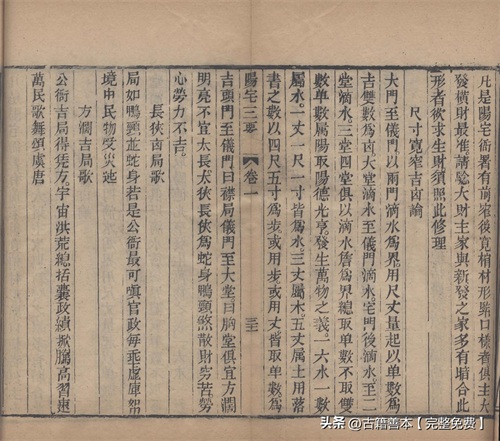 凡是陽宅衙署有前後寬梢材形踏口橋者俱主大
發橫財最准請驗大財主家與新發之家多有暗合此
形者欲求生財須照此修理
尺寸寬窄吉卤論
大門至儀門以兩門滴水為界用尺丈量起以单數為
吉雙數為卤大堂滴水至儀門滴水宅門後滴水至二
堂滴水三堂四堂俱以滴水簷為界總取单數不取雙
數单數属陽取陽德光亨發生萬物之義一六水一數
屬水一丈一尺一寸皆為水三丈屬木五丈属土用落
書之數以四尺五寸為步或用步或用丈皆取单數為
陽宅三要
卷一
三十
吉頭門至儀門曰襟局儀門至大堂曰胸堂俱宜方濶
明亮不宜太長太狹長狹為蛇身鴨頸煞散財窮苦勞
心勞力不吉
長狹卤局歌
局如鴨頸並蛇身若是公衙最可嗔官政每乖虛庫帑
境中民物受災迍
方濶吉局歌
公衙吉局得凭方宇宙洪荒總括囊政績猷騰高習
萬民歌舞頌虞唐
头条 @古籍善本【完整免费】